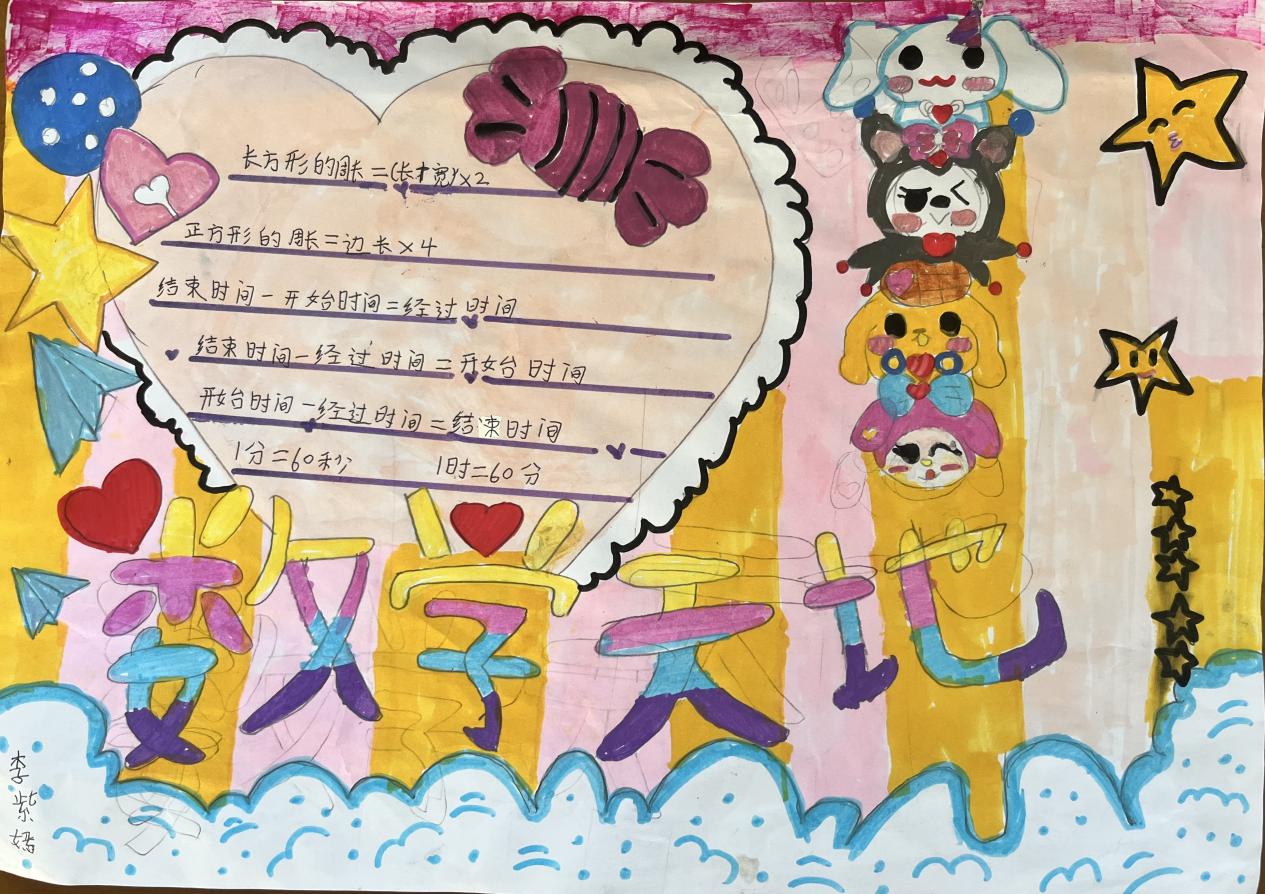 长方形的周长=(长+宽)×2
正方形的周长=边长×4
结束时间-开始时间=经过时间
结束时间-经过时间=开始台时间
开始台时间-经过时间=结束时间
1分=60秒 1时=60分
数学天地
李紫嫣